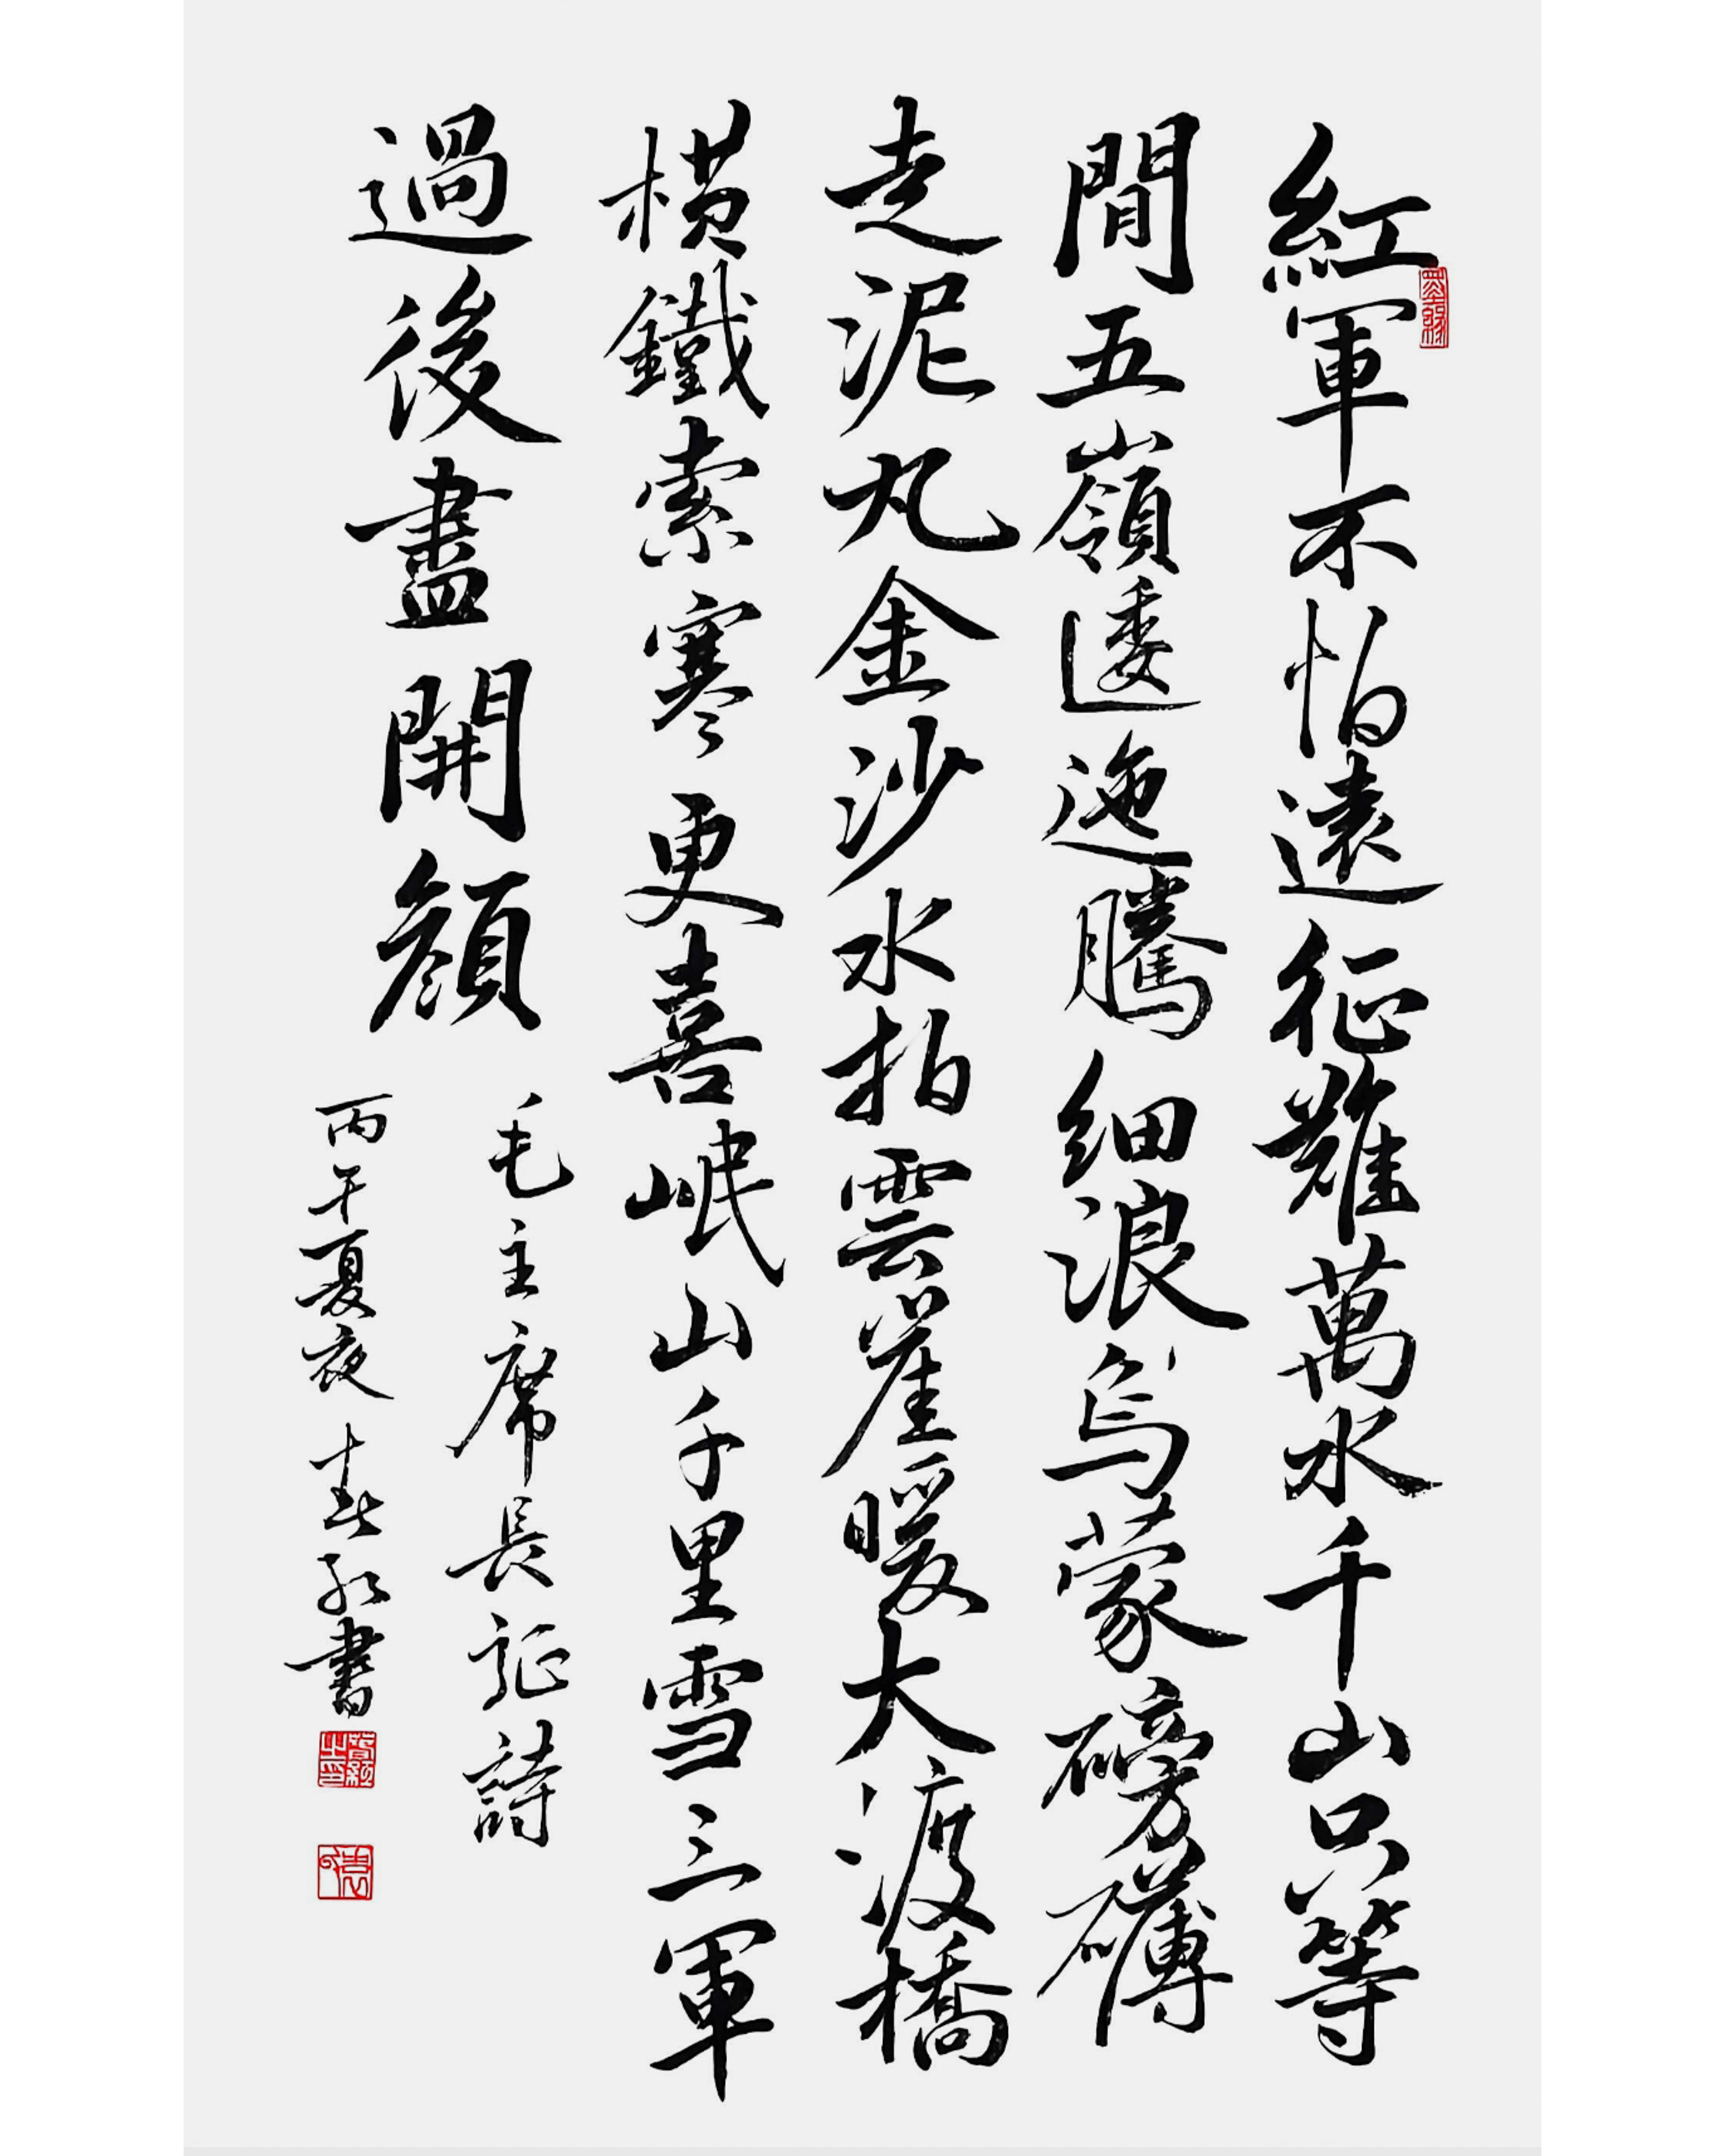 紅軍不怕遠征難萬水千山只等
閒五嶺逶迤騰细浪烏蒙磅礴
走泥丸金沙水拍雲崖暖大渡橋
橫鐵索寒更喜岷山千里雪三軍
過後盡開顔
毛主席長征詩
丙午夏夜春紅書